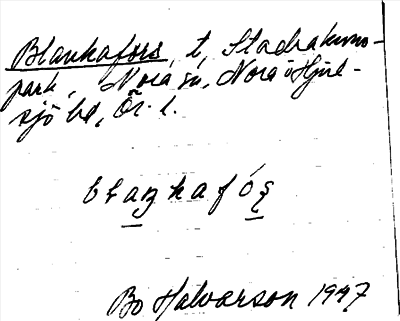 Blankafors, t, Stadrakumo-
park, Nora sn, Nora o Hjul-
sjö bd, Ör. l.
blaŋkafó̱ș
Bo Halvarson 1947